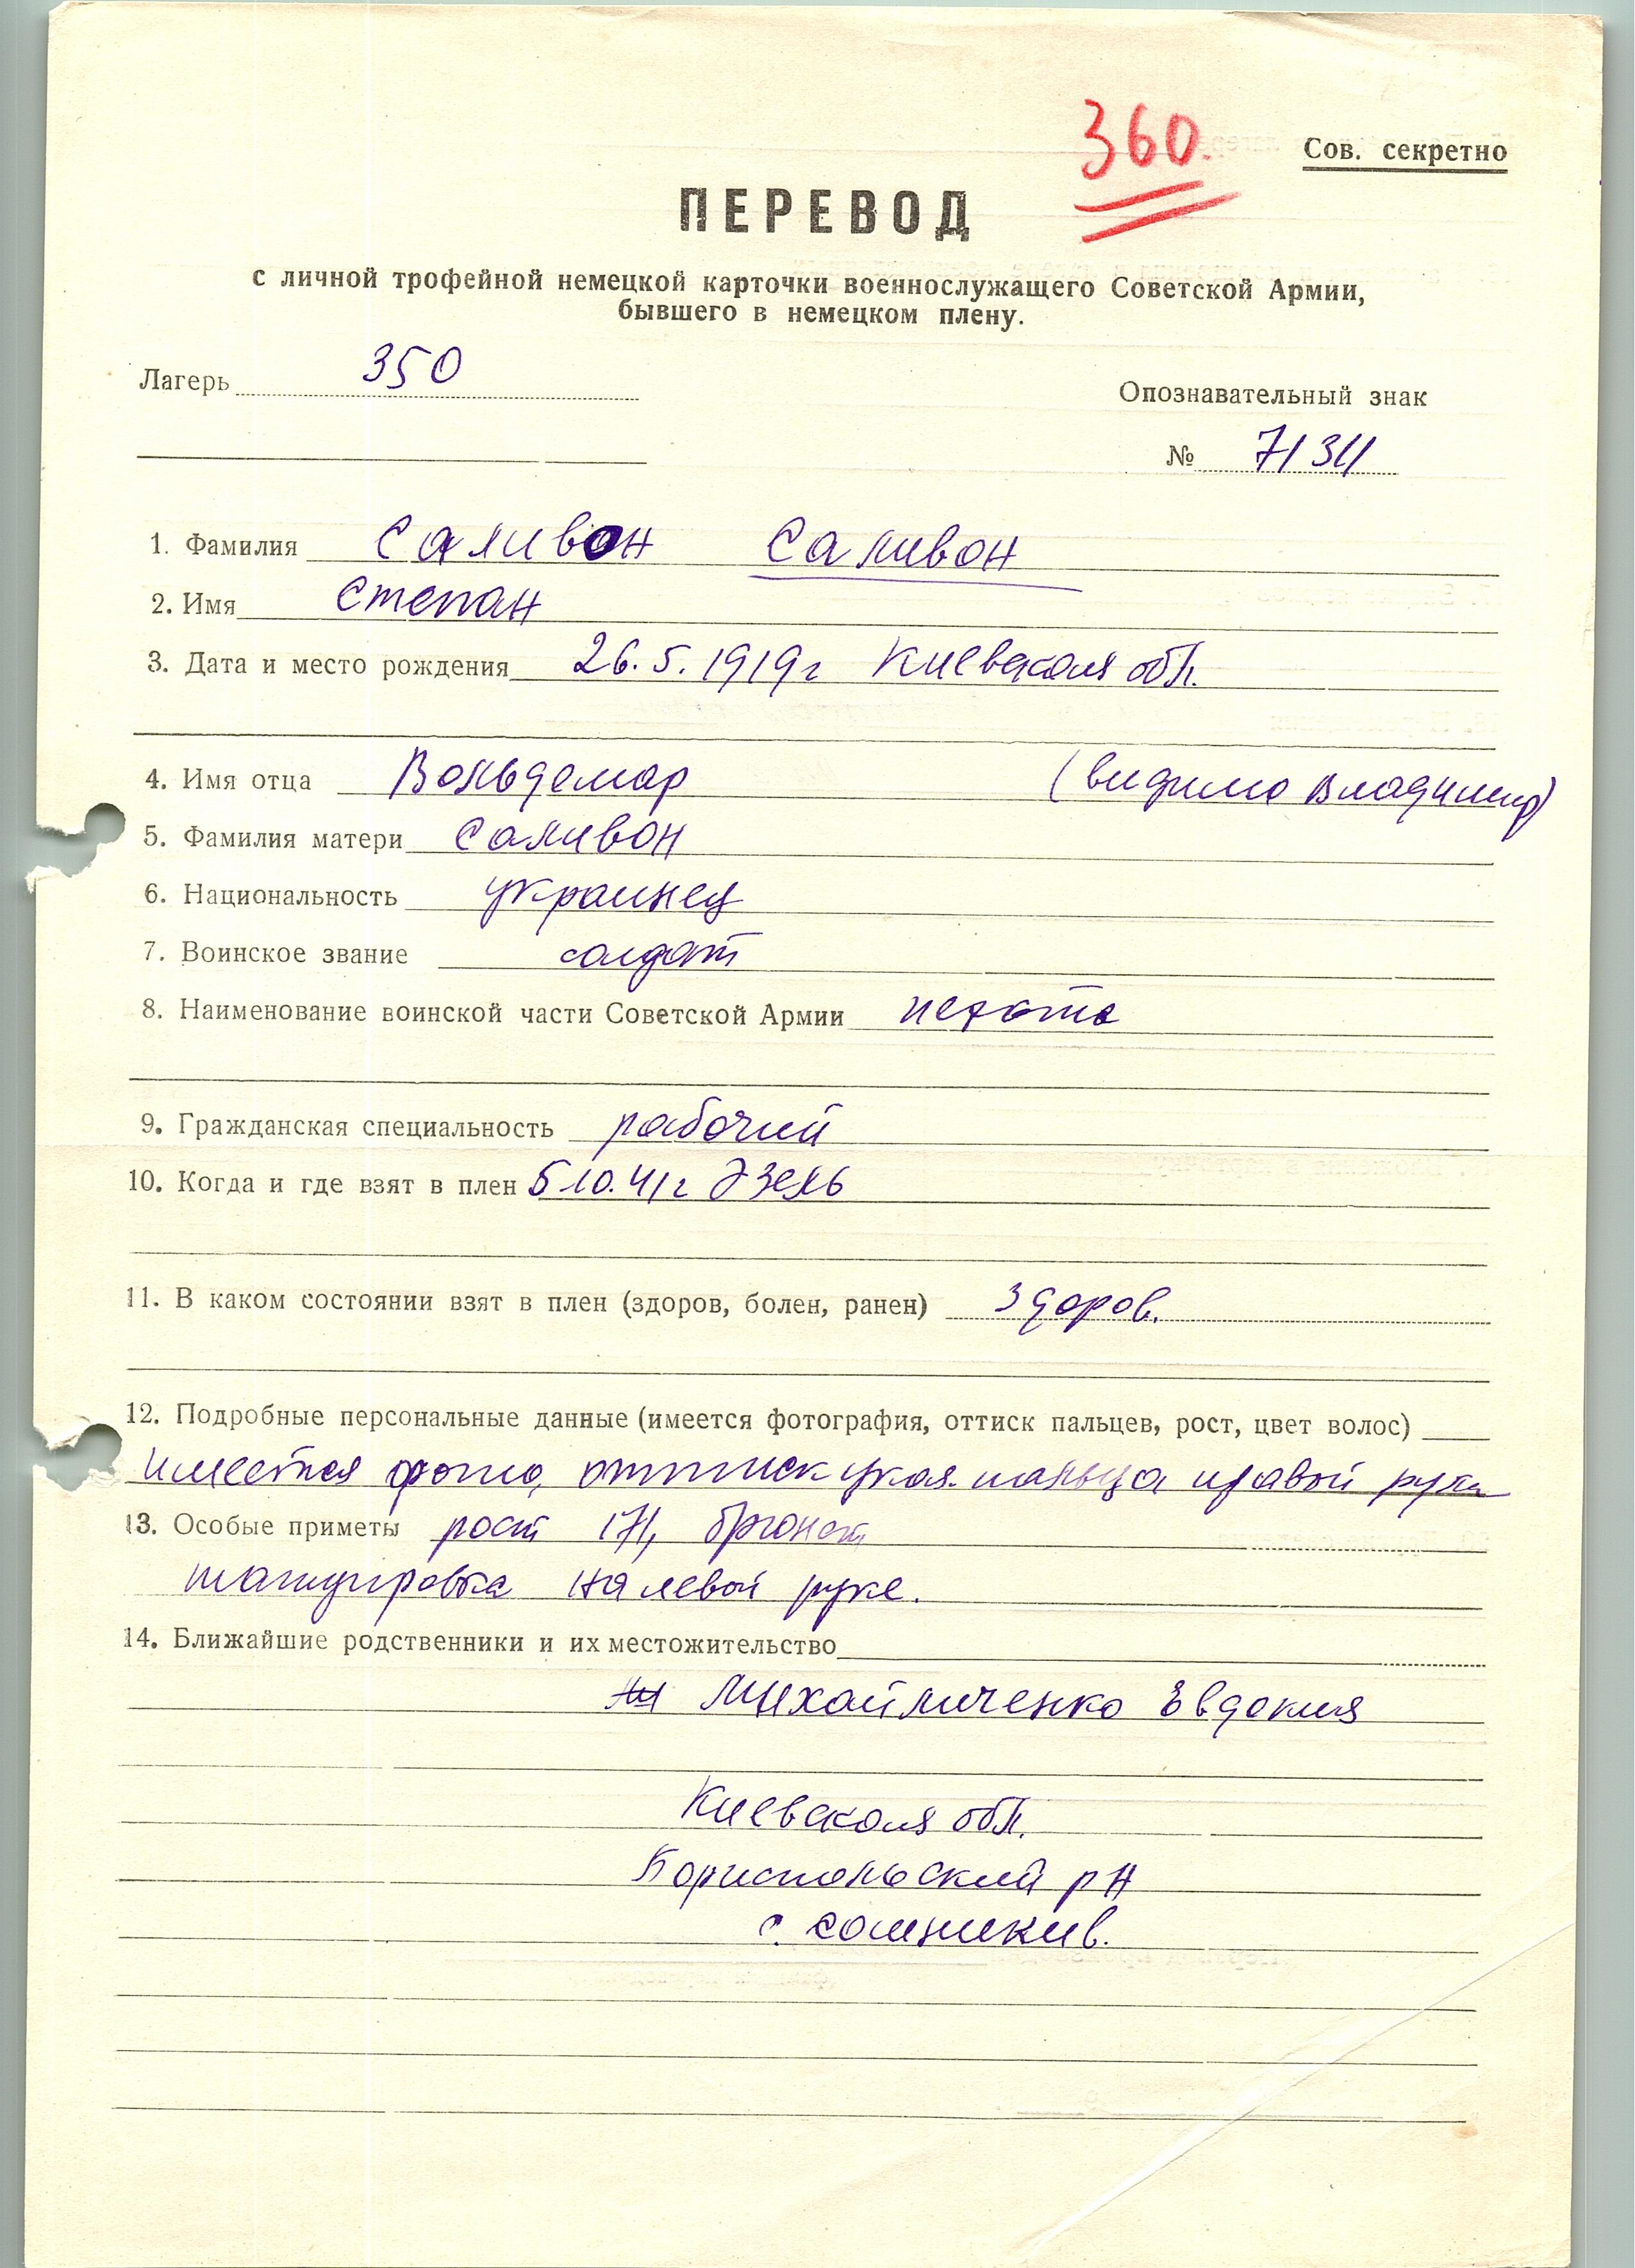 360.
Сов. секретно
ПЕРЕВОД
с личной трофейной немецкой карточки военнослужащего Советской Армии,
бывшего в немецком плену.
Лагерь 350
Опознавательный знак
№ 71311
1. Фамилия Саливон Саливон
2. Имя Степан
3. Дата и место рождения 26.5.1919г Киевская обл.
4. Имя отца Вольдемар (видимо Владимир)
5. Фамилия матери Саливон
6. Национальность украинец
7. Воинское звание солдат
8. Наименование воинской части Советской Армии пехота
9. Гражданская специальность рабочий
10. Когда и где взят в плен 5.10.41г Эзель
11. В каком состоянии взят в плен (здоров, болен, ранен) здоров.
12. Подробные персональные данные (имеется фотография, оттиск пальцев, рост, цвет волос)
имеется фото, оттиск указ. пальца правой руки
13. Особые приметы рост 171, брюнет
татуировка на левой руке.
14. Ближайшие родственники и их местожительство
Михайличенко Евдокия
Киевская обл.
Бориспольский р-н
с. Сошникив.